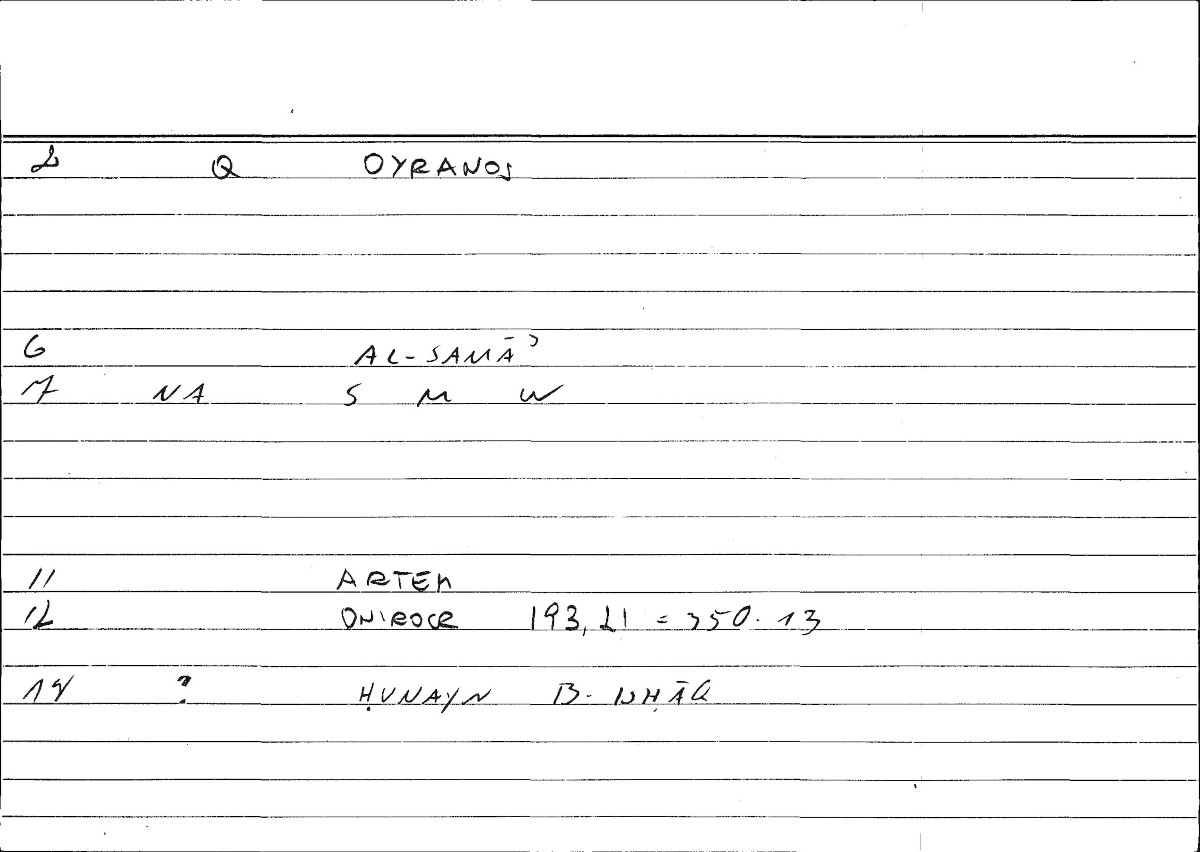 2 Q OYRANOS
6 AL-SAMĀʾ
7 NA S M W
11 ARTEM
12 ONIROCR 193,21 = 350.13
14 ? ḤUNAYN B. ISḤĀQ